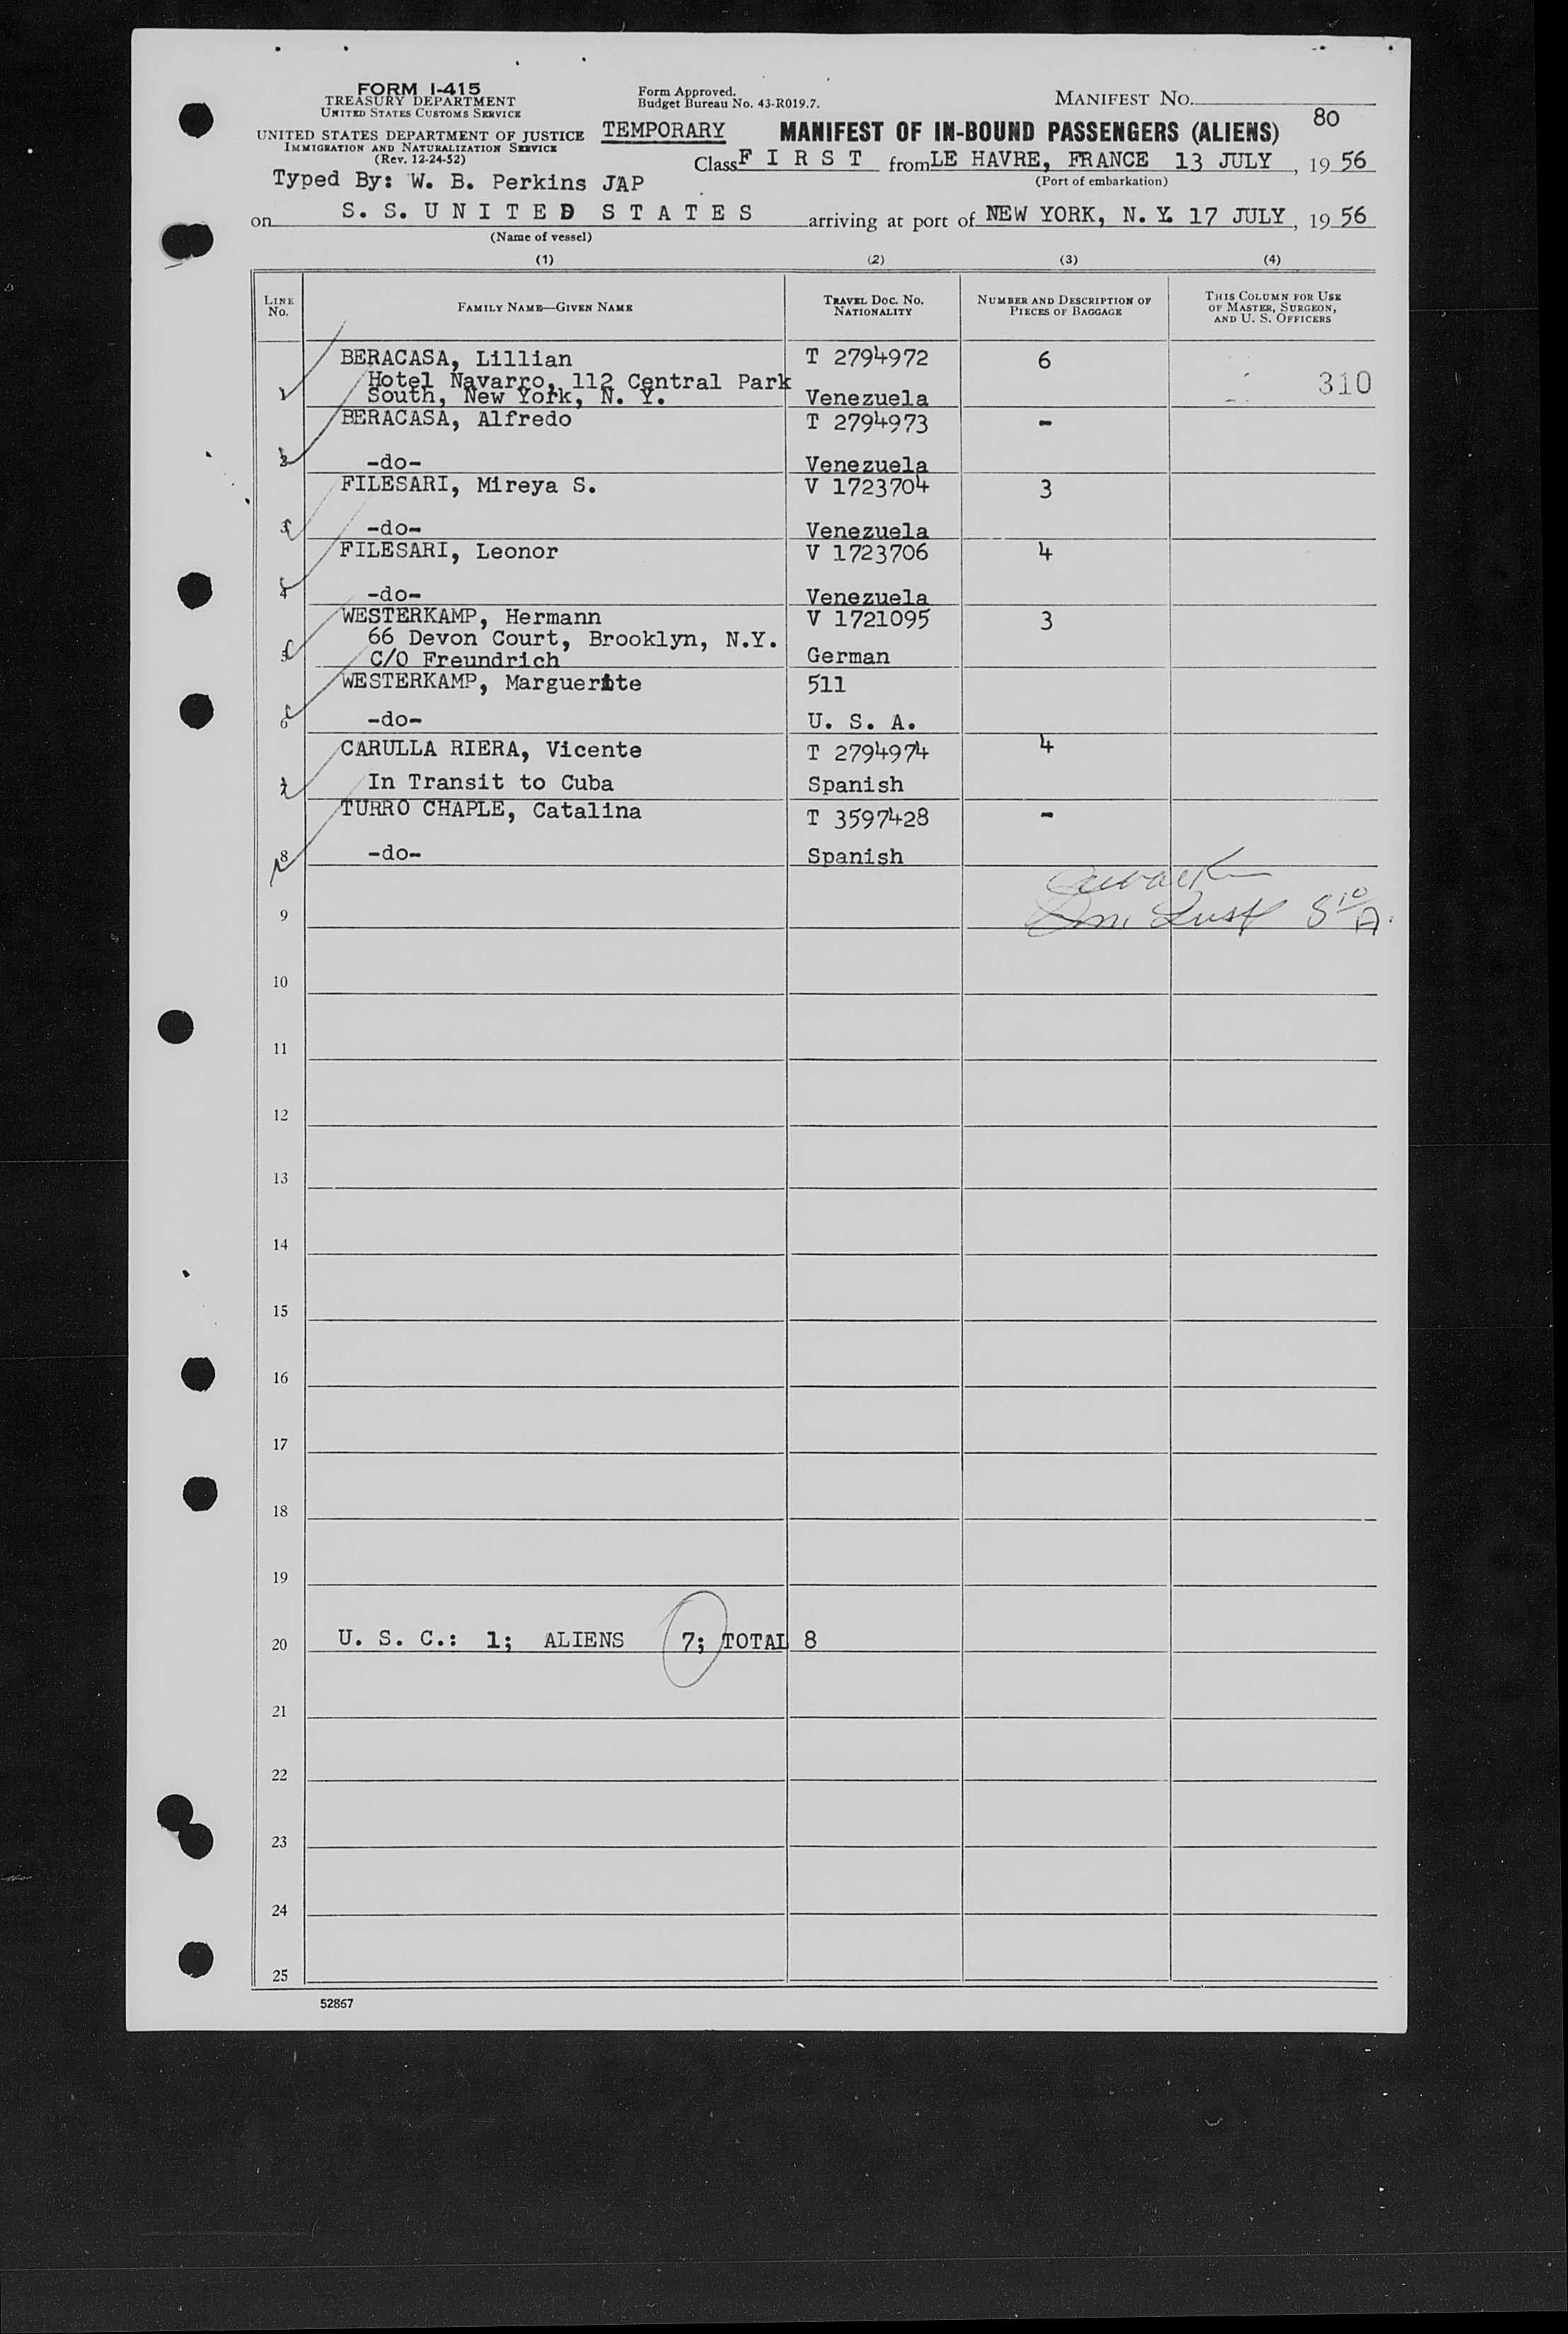 FORM I-415
TREASURY DEPARTMENT
UNITED STATES CUSTOMS SERVICE
UNITED STATES DEPARTMENT OF JUSTICE
IMMIGRATION AND NATURALIZATION SERVICE
(Rev. 12-24-52)
Form Approved.
Budget Bureau No. 43-R019.7.
MANIFEST NO.
80
TEMPORARY MANIFEST OF IN-BOUND PASSENGERS (ALIENS)
Class F I R S T from LE HAVRE, FRANCE 13 JULY, 19 56
(Port of embarkation)
Typed By: W. B. Perkins JAP
on S. S. U N I T E D S T A T E S arriving at port of NEW YORK, N. Y. 17 JULY, 19 56
(Name of vessel)
(1) (2) (3) (4)
LINE No. FAMILY NAME—GIVEN NAME TRAVEL DOC. NO. NATIONALITY NUMBER AND DESCRIPTION OF PIECES OF BAGGAGE THIS COLUMN FOR USE OF MASTER, SURGEON, AND U. S. OFFICERS
BERACASA, Lillian T 2794972 6
Hotel Navarro, 112 Central Park 310
1 South, New York, N. Y. Venezuela
BERACASA, Alfredo T 2794973 -
2 -do- Venezuela
FILESARI, Mireya S. V 1723704 3
3 -do- Venezuela
FILESARI, Leonor V 1723706 4
4 -do- Venezuela
WESTERKAMP, Hermann V 1721095 3
66 Devon Court, Brooklyn, N.Y.
5 C/O Freundrich German
WESTERKAMP, Marguerite 511
6 -do- U. S. A.
CARULLA RIERA, Vicente T 2794974 4
7 In Transit to Cuba Spanish
TURRO CHAPLE, Catalina T 3597428 -
8 -do- Spanish
9
10
11
12
13
14
15
16
17
18
19
20 U. S. C.: 1; ALIENS 7; TOTAL 8
21
22
23
24
25
52867